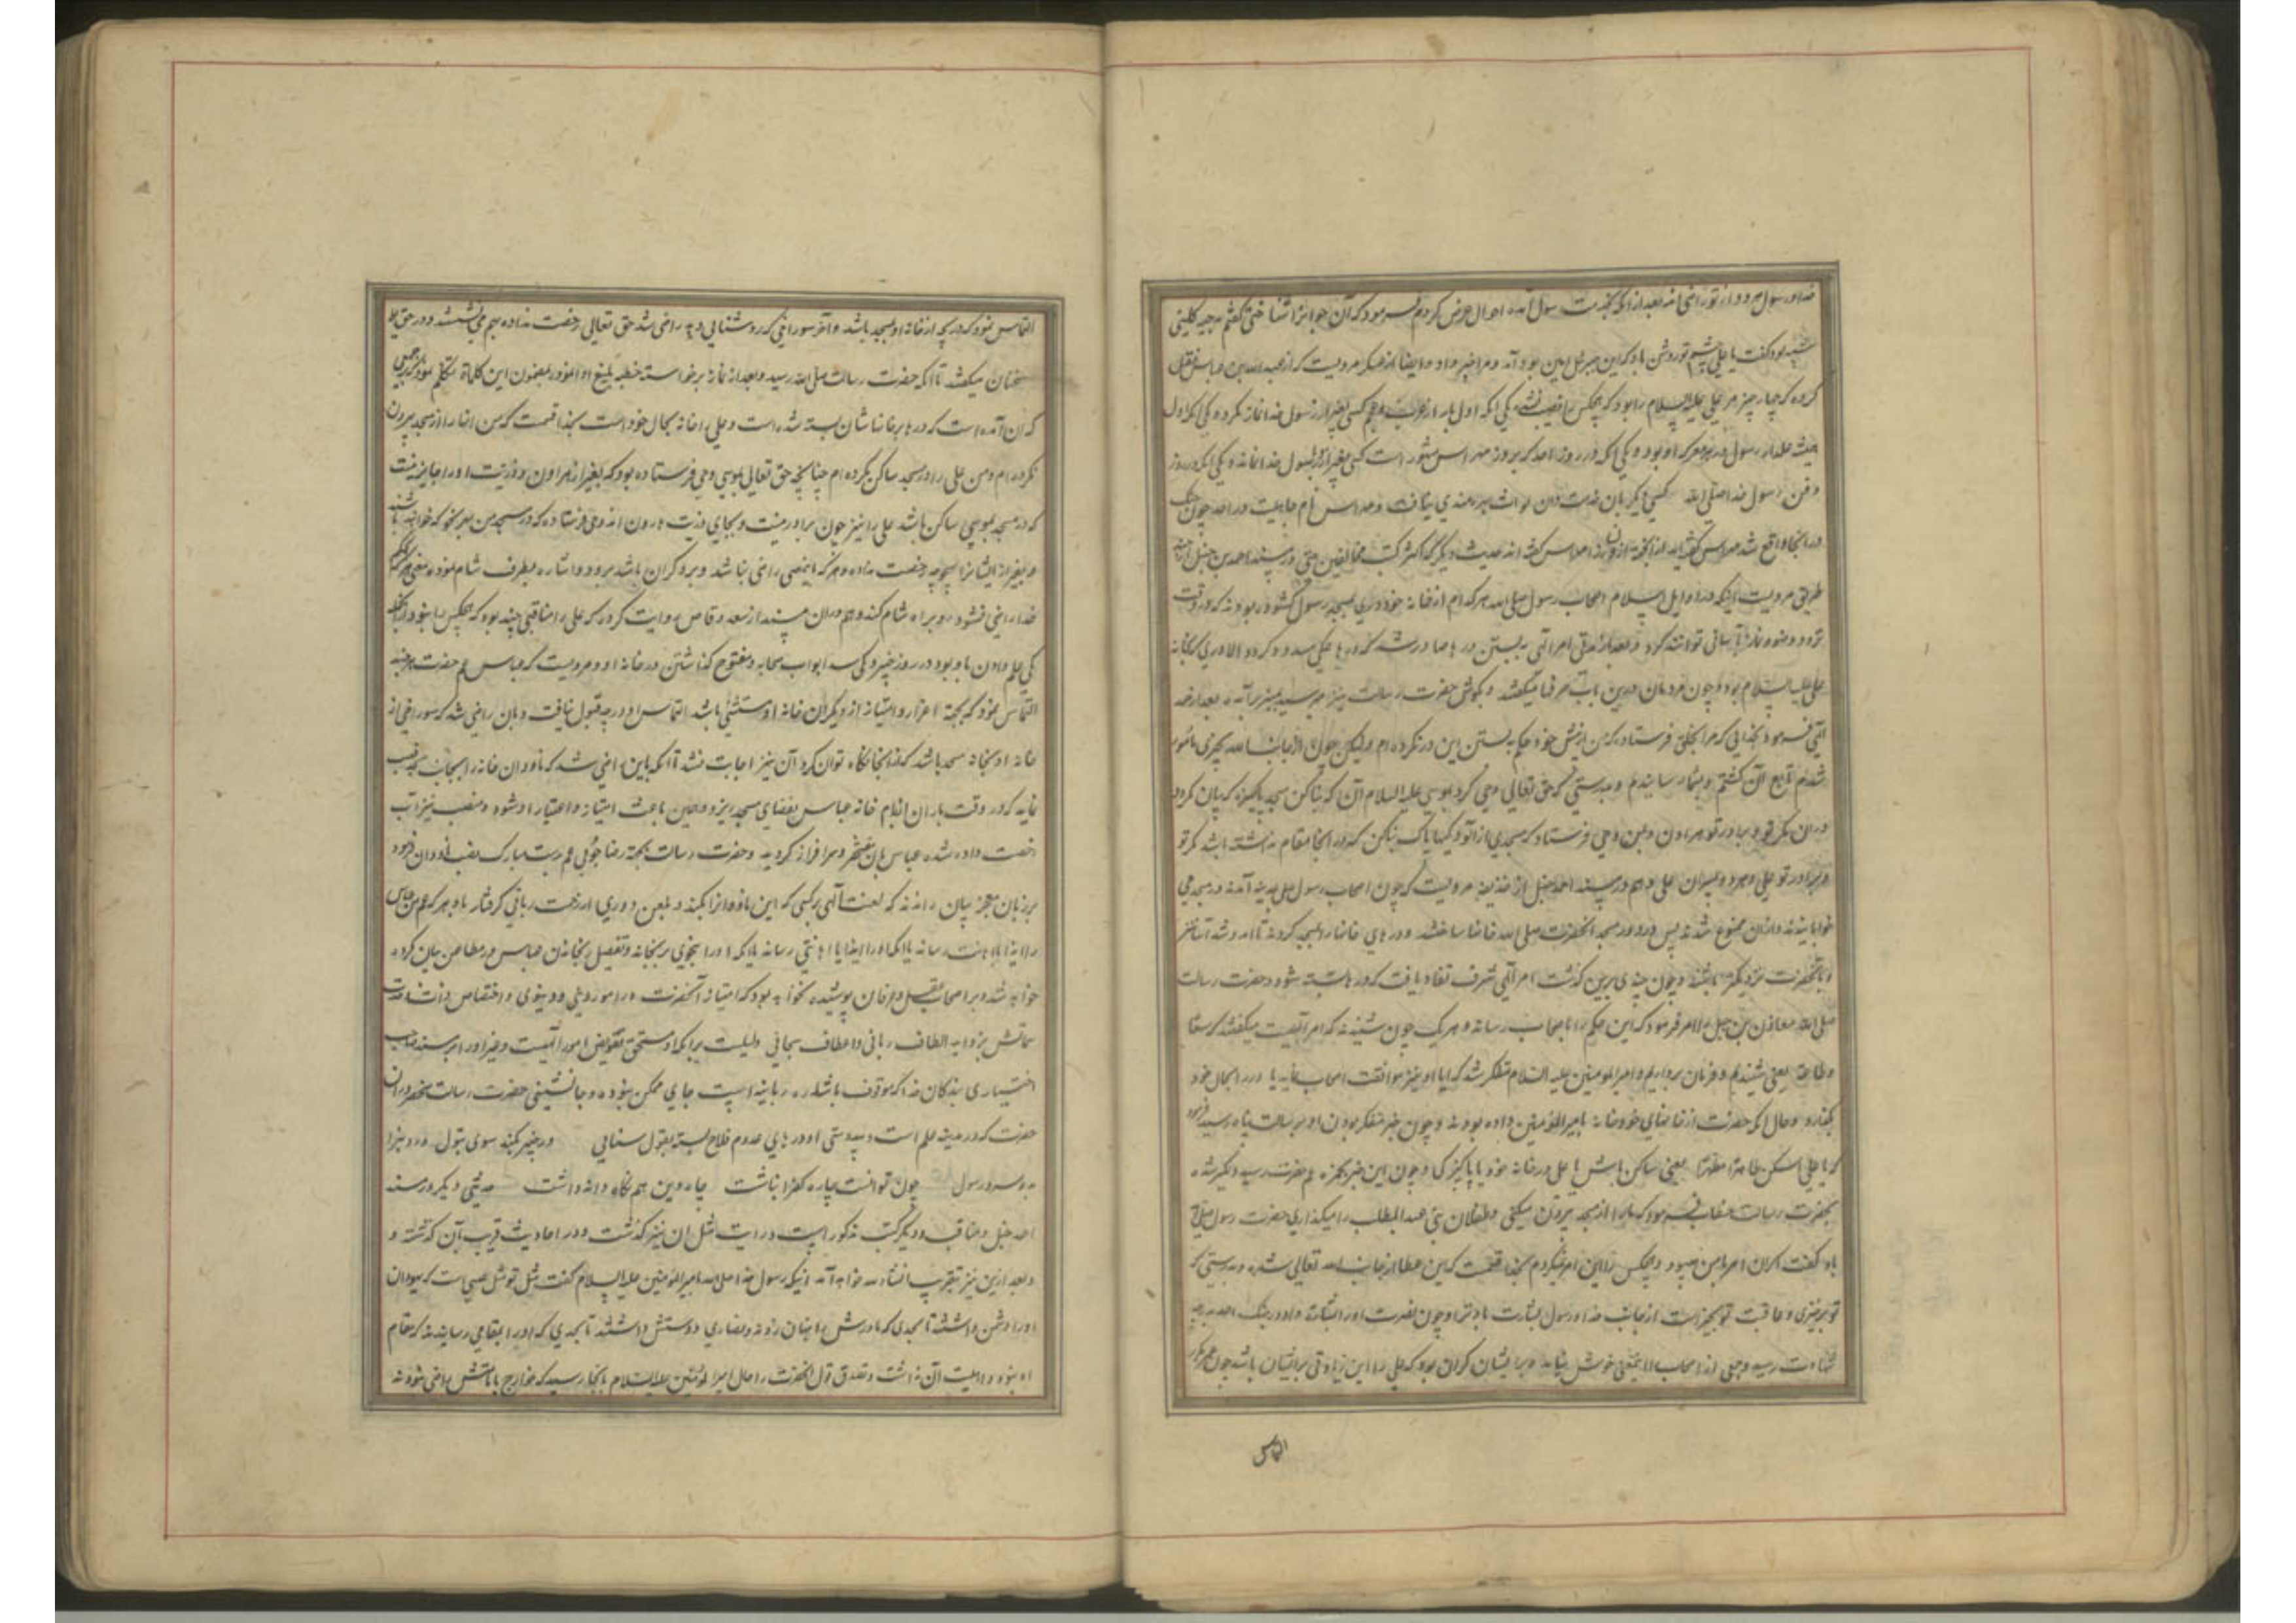 خدا و رسول هر دو از تو راضی اند بعد از آنکه بخدمت رسول آمده احوال عرض کردم فرمود که آن جوانرا شناختی گفتم بدحیه کلبی
شبیه بود گفت یا علی چشم تو روشن باد که این جبرئیل امین بود آمد و مرا خبر داد و ایضا از عکرمه مرویست که از عبد الله بن عباس نقل
کرده که چهار چیز مر علی علیه السلام را بود که هیچکس را نصیب نشد یکی آنکه اول بار از عرب و عجم کسی بغیر از رسول خدا نماز نکرده یکی آنکه اول
علمدار رسول در هر معرکه او بود و یکی آنکه در روز احد که بروز مهراس مشهور است کسی بغیر از رسول خدا نمانده و یکی آنکه در روز
دفن رسول خدا صلی الله کسی دیگر بان خدمت
در آنجا واقع شد مهراس گفته اند حدیث دیگر که اکثر کتب مخالفین حتی در مسند احمد بن حنبل از چند
طریق مرویست اینکه در اوایل اسلام اصحاب رسول صلی الله هر کدام از خانه خود دری بمسجد رسول گشوده بودند که در وقت
تردد وضو و نماز بآسانی توانند کرد و بعد از مدتی امر الهی به بستن درها صادر شد که درها همگی مسدود کردد الا دری که بخانه
علی علیه السلام بود و چون مردمان درین باب حرفها میگفتند و بگوش حضرت رسالت نیز میرسید بمنبر برآمده بعد از حمد
الهی فرمود بخدایی که مرا بخلق فرستاده که من از پیش خود حکم به بستن این در نکرده ام ولیکن چون از جانب الله بچیزی مامور
شدم تابع آن گشتم و بشما رسانیدم و بدرستی که حق تعالی وحی کرد بموسی علیه السلام آن که بنا کن مسجد پاکیزه که
در آن مگر تو و برادر تو هرون و بمن وحی فرستاد که مسجدی از آلودگیها پاک بنا کن که در آنجا مقام نداشته باشد مگر تو
و برادر تو علی و هر دو پسران علی و هم در مسند احمد حنبل از حذیفه مرویست که چون اصحاب رسول صلی بمدینه آمدند در مسجد می
خوابیدند و از آن ممنوع شدند پس در دور مسجد آنحضرت صلی الله خانها ساختند و درهای خانها را بمسجد کردند تا آمد و شد آسانتر
و بآنحضرت نزدیکتر باشند و چون چندی برین گذشت امر الهی شرف نفاذ یافت که درها بسته شود و حضرت رسالت
صلی الله معاذ بن جبل را امر فرمود که این حکم را باصحاب رساند و هر یک چون شنیدند که امر الهیست میگفتند که سمعا
و طاعة یعنی شنیدیم و فرمان برداریم و امیر المومنین علیه السلام متفکر شد که آیا او نیز موافقت اصحاب نماید یا در را بحال خود
بگذارد و حال آنکه حضرت از خانهای خود خانه بامیر المومنین داده بودند و چون خبر متفکر بودن او برسالت پناه رسید فرمود
که یا علی اسکن طاهرا مطهرا یعنی ساکن باش یا علی در خانه خود با پاکیزگی و چون این خبر بحمزه عم حضرت رسید دلگیر شده
بحضرت رسالت عتاب فرمود که ما را از مسجد بیرون میکنی و طفلان بنی عبد المطلب را میگذاری حضرت رسول صلی الله
باو گفت اگر آن امر با من میبود هیچکس را این امر نمیکردم بخدا قسمست که این عطا از جانب الله تعالی شده و بدرستی که
تو بر خیری و عاقبت تو بخیر است از جانب خدا و رسول بشارت باد ترا و چون بعد حضرت او را بشارت داد در جنگ احد بدرجه
شهادت رسید و جمعی از اصحاب را این معنی خوش نیامد و بر ایشان گران بود که علی را این زیادتی بر ایشان باشد چون عمر دیگر
التماس
التماس نمود که دریچه از خانه او بمسجد باشد و آخر سوراخی که روشنایی دهد راضی شد حق تعالی رخصت نداده بهم می نشستند و در حق علی
سخنان میگفتند تا آنکه حضرت رسالت صلی الله رسید و بعد از نماز برخاسته خطبه بلیغ ادا نمود و بمضمون این کلمات متکلم نمود که جمعی
گران آمده است که درها بر خانهاشان بسته شده است و علی را خانه بحال خود است بخدا قسمست که من آنها را از مسجد بیرون
نکرده ام و من علی را در مسجد ساکن نکرده ام چنانچه حق تعالی بموسی وحی فرستاده بود که بغیر از هرون و ذریت او را جایز نیست
که در مسجد موسی ساکن باشد علی را نیز چون برادر منست و بجای ذریت هارون اند وحی فرستاده که در مسجد من بهر نحو که خواهد باشند
و بغیر از ایشانرا هیچوجه رخصت نداده و هر که باین معنی راضی نباشد و برو گران باشد برود و اشاره بطرف شام نمود یعنی هر که بحکم
خدا راضی نشود رو براه شام کند و هم در آن مسند از سعد وقاص روایت کرده که علی را مناقبی چند بود که هیچکس را نبود از آنجمله
یکی علم دادن باو بود در روز خیبر و یکی سد ابواب صحابه و مفتوح گذاشتن در خانه او و مرویست که عباس عم حضرت هر چند
التماس نمود که بجهة اعزاز و امتیاز از دیگران خانه او مستثنی باشد التماس او درجه قبول نیافت و بان راضی شد که سوراخی از
خانه او بجانب مسجد باشد که از آنجا نگاه توان کرد آن نیز اجابت نشد تا آنکه باین راضی شد که ناودان خانه را بجانب مسجد نصب
نماید که در وقت باران از بام خانه عباس بفضای مسجد ریزد و همین باعث امتیاز و اعتبار او شود و نصب میزاب
رخصت داده شده عباس بان مفتخر و سرافراز گردید و حضرت رسالت بجهة رضا جویی عم بدست مبارک نصب ناودان فرمود
بر زبان معجز بیان راندند که لعنت الهی بر کسی که این ناودانرا بکند و بلعن و دوری از رحمت ربانی گرفتار باد هر که عم من عباس
را ایذا یا اهانت رساند یا آنکه او را ایذا یا اهانتی رساند یا آنکه او را بنحوی برنجاند و تفصیل رنجانیدن عباس در مطاعن بیان کرده
خواهد شد و بر اصحاب عقل و عرفان پوشیده نخواهد بود که امتیاز آنحضرت در امور دینی و دنیوی و اختصاص ذات
سماتش بزواید الطاف ربانی و اعطاف سبحانی دلیلست بر آنکه او مستحق تفویض امور امتست و غیر او را بر مسند صاحب
اختیاری بندگان خدا که موقوف با شاره ربانیه است جای ممکن نبوده و جانشینی حضرت رسالت منحصر در آن
حضرت که در مدینه علم است و بیدوستی او درهای عدم فلاح بسته بقول سنایی در خیبر بکند سوی بتول در دین را
بدو سپرد رسول چون توانست چاره کفر انباشت چاه دین هم نگاه داند داشت حدیثی دیگر در مسند
احمد حنبل و مناقب و دیگر کتب مذکور است و روایت مثل آن نیز گذشت و در احادیث قریب آن گذشته و
و بعد ازین نیز بتقریب انشاء الله خواهد آمد اینکه رسول خدا صلی الله امیر المومنین علیه السلام گفت مثل تو مثل عیسی است که یهودان
او را دشمن داشتند تا بحدی که مادرش را بهتان زدند و نصاری دوستش داشتند تا بحدی که او را بمقامی رسانیدند که مقام
او نبود و اهلیت آن نداشت و تصدق قول آنحضرت را حال امیر المومنین علیه السلام بآنجا رسید که خوارج بامامتش راضی نشوند